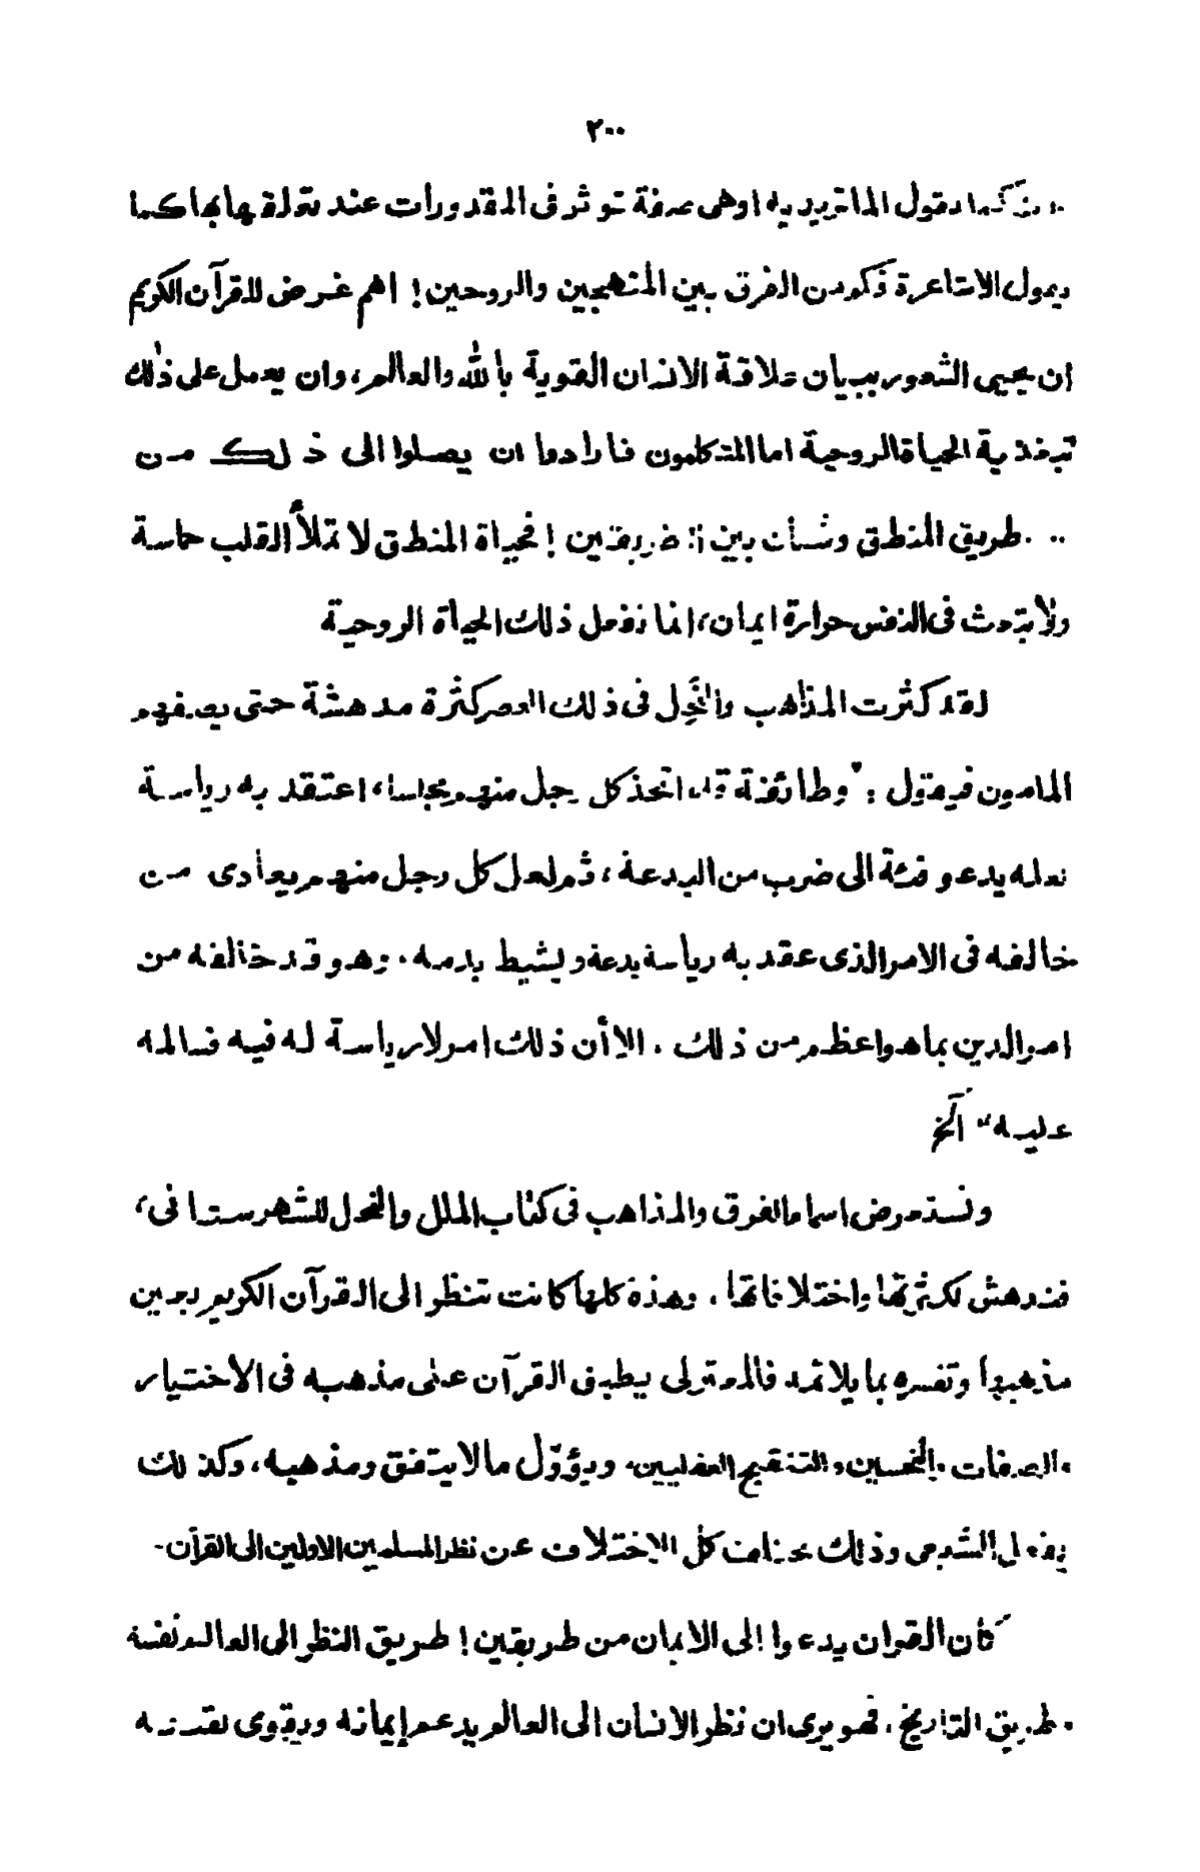 ٢٠٠
كما تقول الماتريدية او هى صفة توثر فى المقدورات عند تعلقها بها كما
يقول الاشاعرة ذكم من الفرق بين المنهجين والروحين! اهم غرض للقرآن الكريم
ان يحيى الشعور ببيان علاقة الانسان القوية بالله والعالم، وان يعمل على ذلك
تبغذية الحياة الروحية اما المتكلمون فارادوا ان يصلوا الى ذلك من
طريق المنطق وشأن بين الطريقين! فحياة المنطق لا تملأ القلب حماسة
ولا تبحث فى النفس حرارة ايمان، انما تفعل ذلك الحياة الروحية
لقد كثرت المذاهب والنِحَل فى ذلك العصر كثرة مدهشة حتى يصفهم
المامون فيقول: "وطائفة قد اتخذ كل رجل منهم مجلسا، اعتقد به رياسة
لعله يدعو فئة الى ضرب من البدعة، ثم لعل كل رجل منهم يعادى من
خالفه فى الامر الذى عقد به رياسة بدعة ويشيط بدمه. وهو قد خالفه من
امر الدين بما هو اعظم من ذلك. الا أن ذلك امر لا رياسة له فيه فسالمه
عليه" آلخ
ونستعرض اسماء الفرق والمذاهب فى كتاب الملل والنحل للشهرستانى،
فندهش لكثرتها واختلافاتها. وهذه كلها كانت تنظر الى القرآن الكريم بعين
مذهبها وتفسره بما يلائمه فالمعتزلى يطبق القرآن على مذهبه فى الاختيار
والصفات والتحسين والتنقيح العقليين، ويؤوّل ما لا يتفق ومذهبه، وكذلك
يفعل الشيعى وذلك يخالف كل الاختلاف عن نظر المسلمين الاولين الى القرآن-
كان القران يدعوا إلى الايمان من طريقين! طريق النظر الى العالم نفسه
وطريق التاريخ. فهو يرى ان نظر الانسان الى العالم يدعم إيمانه ويقوى يقينه